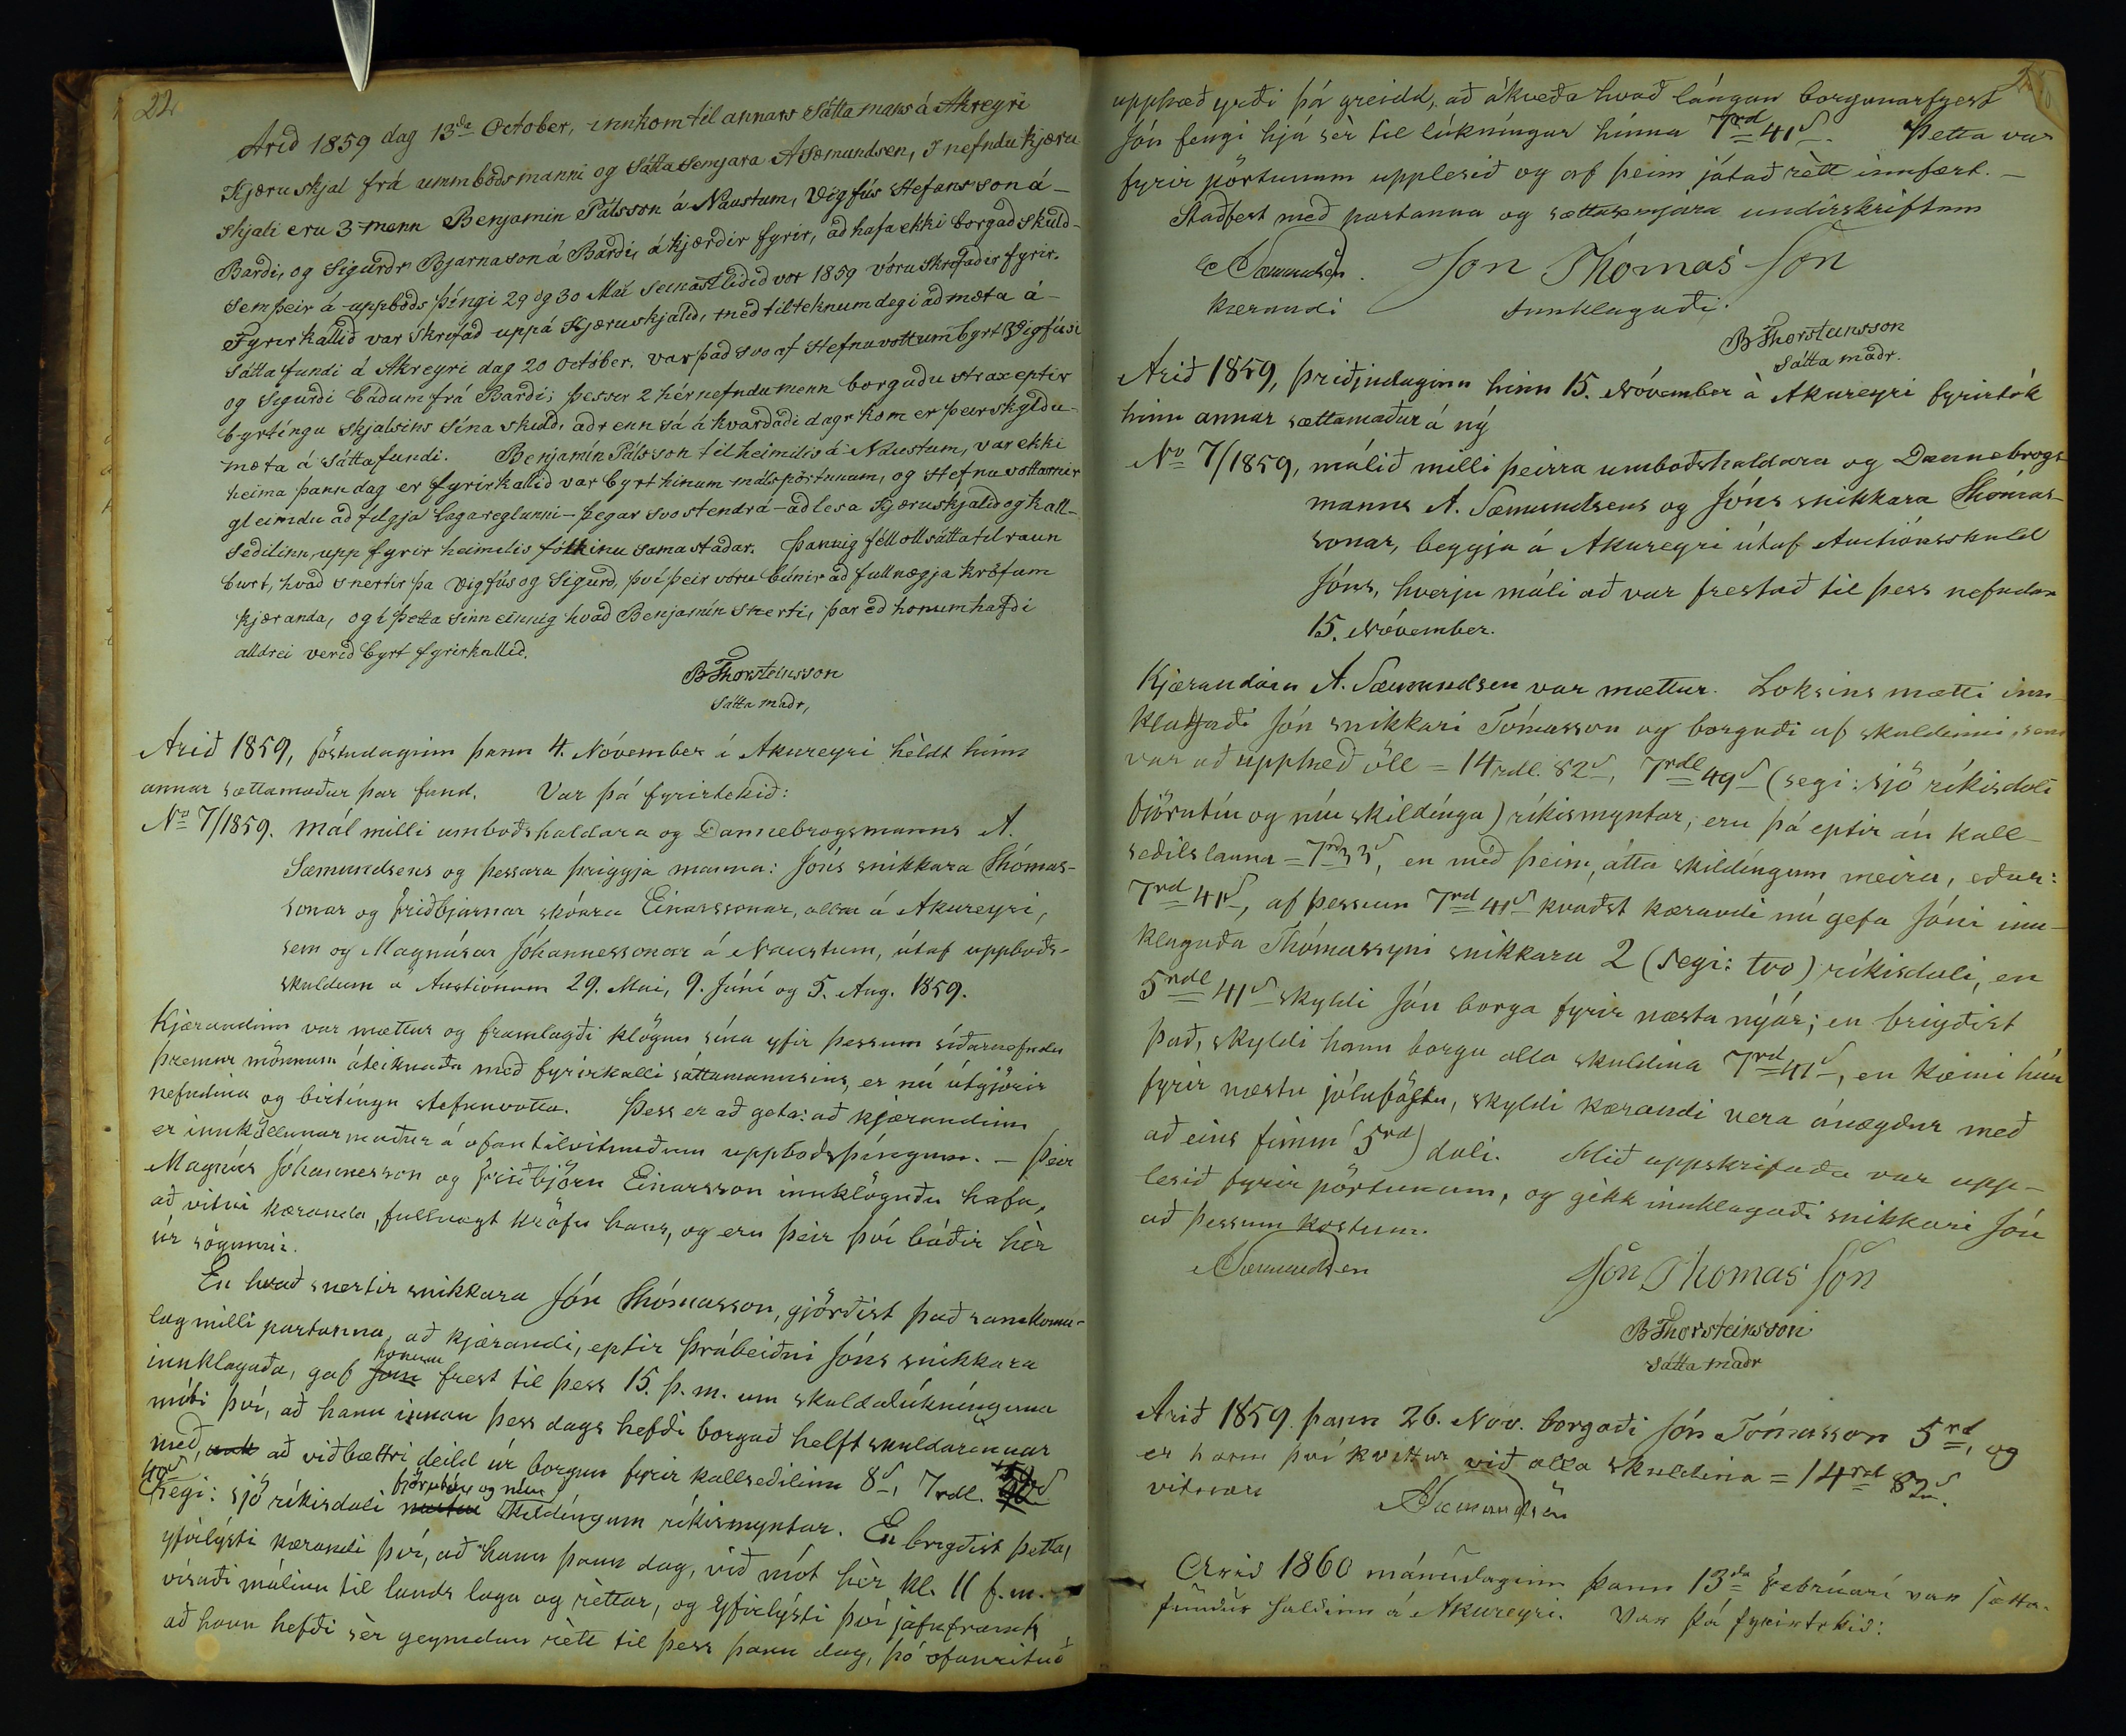 22
Arid 1859 dag 13da October, innkom til annars Sáttamans á Akreyri
Kjæruskjal frá ummbodsmanni og Sáttasemjara ASæmundsen, I nefndu kjæru
skjali eru 3-menn Benjamin Pálsson á Naustum, Vigfús Stefansson á-
Bardi, og Sigurdr Bjarnason á Bardi, ákjærdir fyrir, ad hafa ekki borgad skuld-
sem þeir á uppbods þingi 29 og 30 Mai seinastlidid vor 1859 vóru Skrifadir fyrir.
Fyrirkallid var Skrifad uppá Kjæruskjalid, med tilteknum degi ad mæta á-
Sáttafundi á Akreyri dag 20 October. var þad svo af Stefnuvottum byrt Vigfúsi
og Sigurdi bádum frá Bardi; þesser 2 hérnefndu menn borgudu strax eptir
byrtingu skjalsins sína skuld, adr enn sá ákvardadi dagr kom er þeir skyldu-
mæta á sáttafundi. Benjamín Pálsson til heimilis á Naustum, var ekki
heima þann dag er fyrirkallid var byrt hinum málspörtunum, og Stefnuvottarnir
gleimdu ad fylgja lagareglunni - þegar svo stendr á - ad lesa Kjæruskjalid og kall-
sedilinn, upp fyrir heimilis fólkinu samastadar. Þannig féll öll sáttatilraun
burt, hvad snertir þa Vigfús og Sigurd, því þeir vóru búnir ad fullnægja kröfum
kjæranda, og í þetta sinn einnig hvad Benjamín snerti, þar ed honum hafdi
alldrei verid byrt fyrirkallid.
BThorsteinsson
Sátta madr,
Arið 1859, föstudaginn þann 4. Nóvember í Akureyri hèldt hinn
annar sættamaður þar fund. Var þá fyrirtekið:
No 7/1859. Mál milli umboðshaldara og Dannebrogsmanns A.
Sæmundsens og þessara þriggja manna: Jóns snikkara Thómas-
sonar og Friðbjarnar skóara Einarssonar, allra á Akureyri,
sem og Magnúsar Jóhannessonar á Naustum, útaf uppboðs-
skuldum á Auctiónum 29. Mai, 9. Júní og 5. Aug. 1859.
Kjærandinn var mættur og framlagði klögun sína yfir þessum síðarnefndu
þremur mönnum áteiknaða með fyrirkalli sáttamannsins, er nú útgjörir
nefndina og birtíngu stefnuvotta. Þess er að geta: að kjærandinn
er innköllunarmaður á ofantilvitnuðum uppboðsþíngum. - Þeir
Magnús Jóhannesson og Friðbjörn Einarsson innklöguðu hafa,
að vitni kæranda, fullnægt kröfu hans, og eru þeir því báðir hèr
úr sögunni.
En hvað snertir snikkara Jón Thómasson, gjörðist það samkomu-
lag milli partanna, að kjærandi, eptir þrábeiðni Jóns snikkara
innklagaða, gaf honum frest til þess 15. þ. m. um skuldalúkninguna
móti því, að hann innan þess dags hefði borgað helft skuldarinnar
með, að viðbættri deild úr borgun fyrir kallseðilinn 8s, 7rdl.
49s (segi: sjö ríkisdali fjörutíu og níu skildíngum ríkismyntar. En brygðist þetta,
yfirlýsti kærandi því, að hann þann dag, við mót hèr kl. 11 f.m.
vísaði málinu til lands laga og rèttar, og yfirlýsti því jafnframt
að hann hefði sèr geymdan rètt til þess þann dag, þó ofanrituð
upphæð yrði þá greidd, að ákveða hvað lángan borgunarfrest
Jón fengi hjá sèr til lúkningar hinna 7rd 41s. Þetta var
fyrir pörtunum upplesið og af þeim játað rètt innfært. -
Staðfest með partanna og sættasemjara undirskriftum
ASæmundsen. Jon Thomas Son
kærandi Innklagaði.
BThorsteinsson
Sátta madr.
Arið 1859, þriðjudaginn hinn 15. Nóvember á Akureyri fyrirtók
hinn annar sættamaður á ný
No 7/1859, málið milli þeirra umboðshaldara og Dannebrogs
manns A. Sæmundsens og Jóns snikkara Thómas-
sonar, beggja á Akureyri útaf Auctiónsskuld
Jóns, hverju máli að var frestað til þess nefndan
15. Nóvember.
Kjærandinn A. Sæmundsen var mættur. Loksins mætti inn-
klagaði Jón snikkari Tómasson og borgaði af skuldinni, sem
var að upphæð öll = 14rdl. 82s, 7rdl 49s (segi: sjö ríkisdali
fjörutíu og níu skildínga) ríkismyntar; eru þá eptir án kall-
seðilslauna = 7rd 33s, en með þeim, átta skildíngum meira, eður:
7rd 41s, af þessum 7rd 41s kvaðst kærandi nú gefa Jóni inn-
klagaða Thómassyni snikkara 2 (segi: tvo) ríkisdali, en
5rdl 41s skyldi Jón borga fyrir næsta nýár; en brigðist
það, skyldi hann borga alla skuldina 7rd 41s, en kæmi hún
fyrir næstu jólaföstu, skyldi kærandi vera ánægður með
að eins fimm (5rd) dali. Hið uppskrifaða var upp-
lesið fyrir pörtunum, og gèkk innklagaði snikkari Jón
að þessum kostum.
ASæmundsen Jón Thomas Son
BThorsteinsson
Sátta madr
Arið 1859. þann 26. Nóv. borgaði Jón Tómasson 5rd, og
er hann því kvittur við alla skuldina = 14rd 82s.
vitnar ASæmundsen
Arið 1860 mánudaginn þann 13da Febrúarí var Sátta-
fundur haldinn á Akureyri. Var þá fyrirtekið: